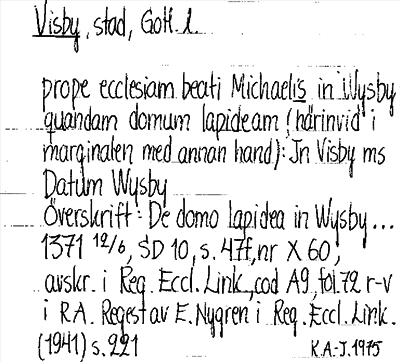 Visby, stad, Gotl. l.
prope ecclesiam beati Michaelis in Wysby
quandam domum lapideam (härinvid i
marginalen med annan hand): Jn Visby ms
Datum Wysby
Överskrift: De domo lapidea in Wysby...
1371 12/6, SD 10, s. 47f, nr X 60,
avskr. i Reg. Eccl. Link., cod A9, fol. 72 r-v
i RA. Regest av E. Nygren i Reg. Eccl. Link.
(1941) s. 221
K.A-J. 1975